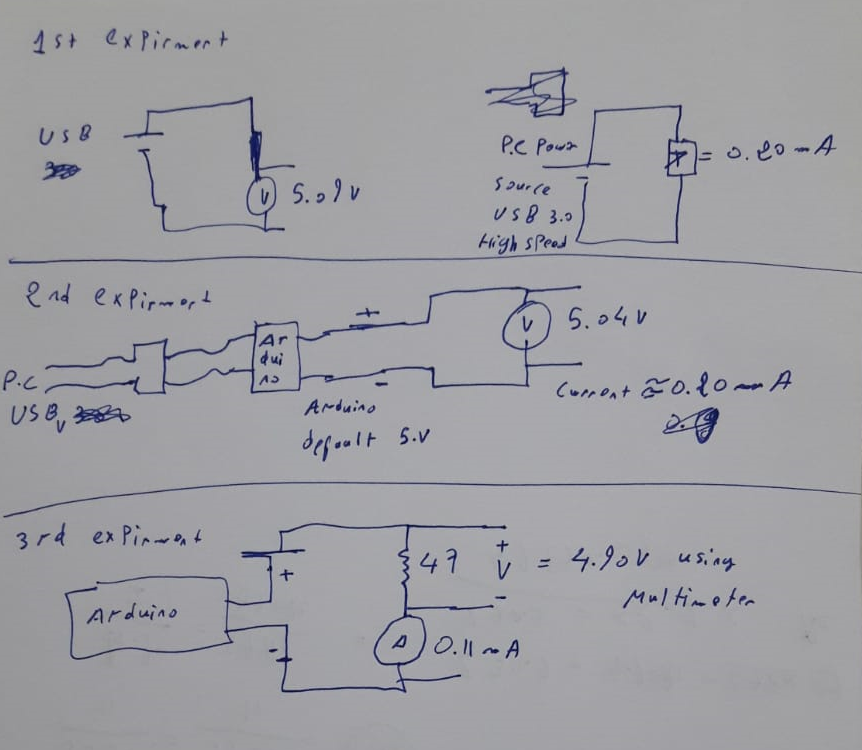 1st expirment
USB
V 5.09V
P.C Power
source
USB 3.0
High speed
= 0.20 mA
2nd expirment
P.C
USB
Ar
dui
no
+
-
Arduino
default 5.V
V 5.04V
Current ≈ 0.20 mA
3rd expirment
Arduino
+
-
47
+
V = 4.90V using
-
Multimeter
A 0.11 mA